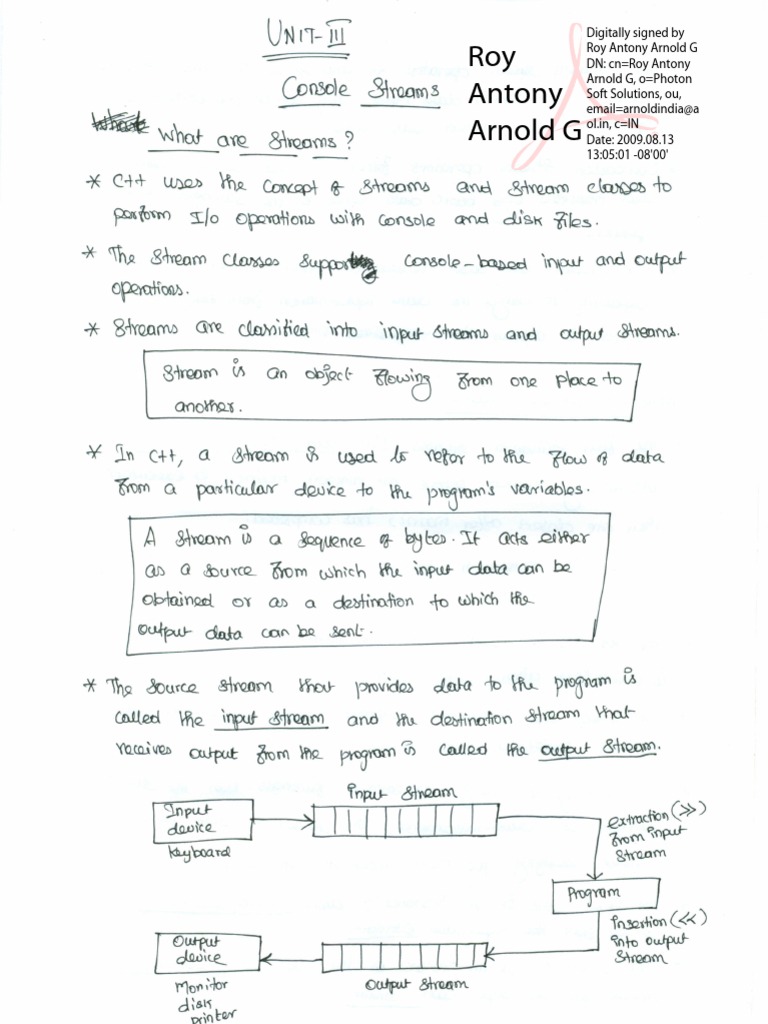 UNIT-III
Console Streams
Roy
Antony
Arnold G
Digitally signed by
Roy Antony Arnold G
DN: cn=Roy Antony
Arnold G, o=Photon
Soft Solutions, ou,
email=arnoldindia@a
ol.in, c=IN
Date: 2009.08.13
13:05:01 -08'00'
What are Streams?
* C++ uses the concept of streams and stream classes to
perform I/O operations with console and disk files.
* The stream classes support console-based input and output
operations.
* Streams are classified into input streams and output streams.
Stream is an object flowing from one place to
another.
* In C++, a stream is used to refer to the flow of data
from a particular device to the program's variables.
A stream is a sequence of bytes. It acts either
as a source from which the input data can be
obtained or as a destination to which the
output data can be sent.
* The source stream that provides data to the program is
called the input stream and the destination stream that
receives output from the program is called the output stream.
Input Stream
Input
device
keyboard
extraction (>>)
from input
Stream
Program
Insertion (<<)
into output
Stream
Output
device
Output Stream
Monitor
disk
printer